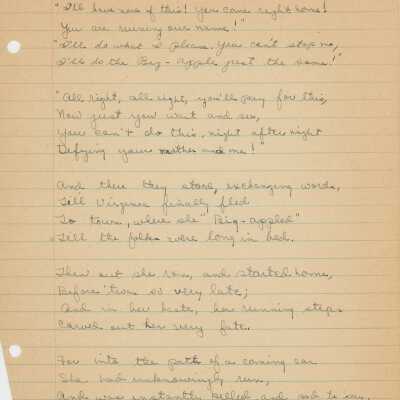 "I'll have none of this! You come right home!
You are ruining our name!"
"I'll do what I please. You can't stop me,
I'll do the Big-Apple just the same!"

"All right, all right, you'll pay for this,
Now just you wait and see,
You can't do this, night after night
Defying your mother and me!"

And there they stood, exchanging words,
Till Virginia finally fled
To town, where she "Big-appled"
Till the folks were long in bed.

Then out she ran, and started home,
Before 'twas so very late;
And in her haste, her running steps
Carved out her very fate.

For into the path of a coming car
She had unknowingly run,
And was instantly killed and sad to say,